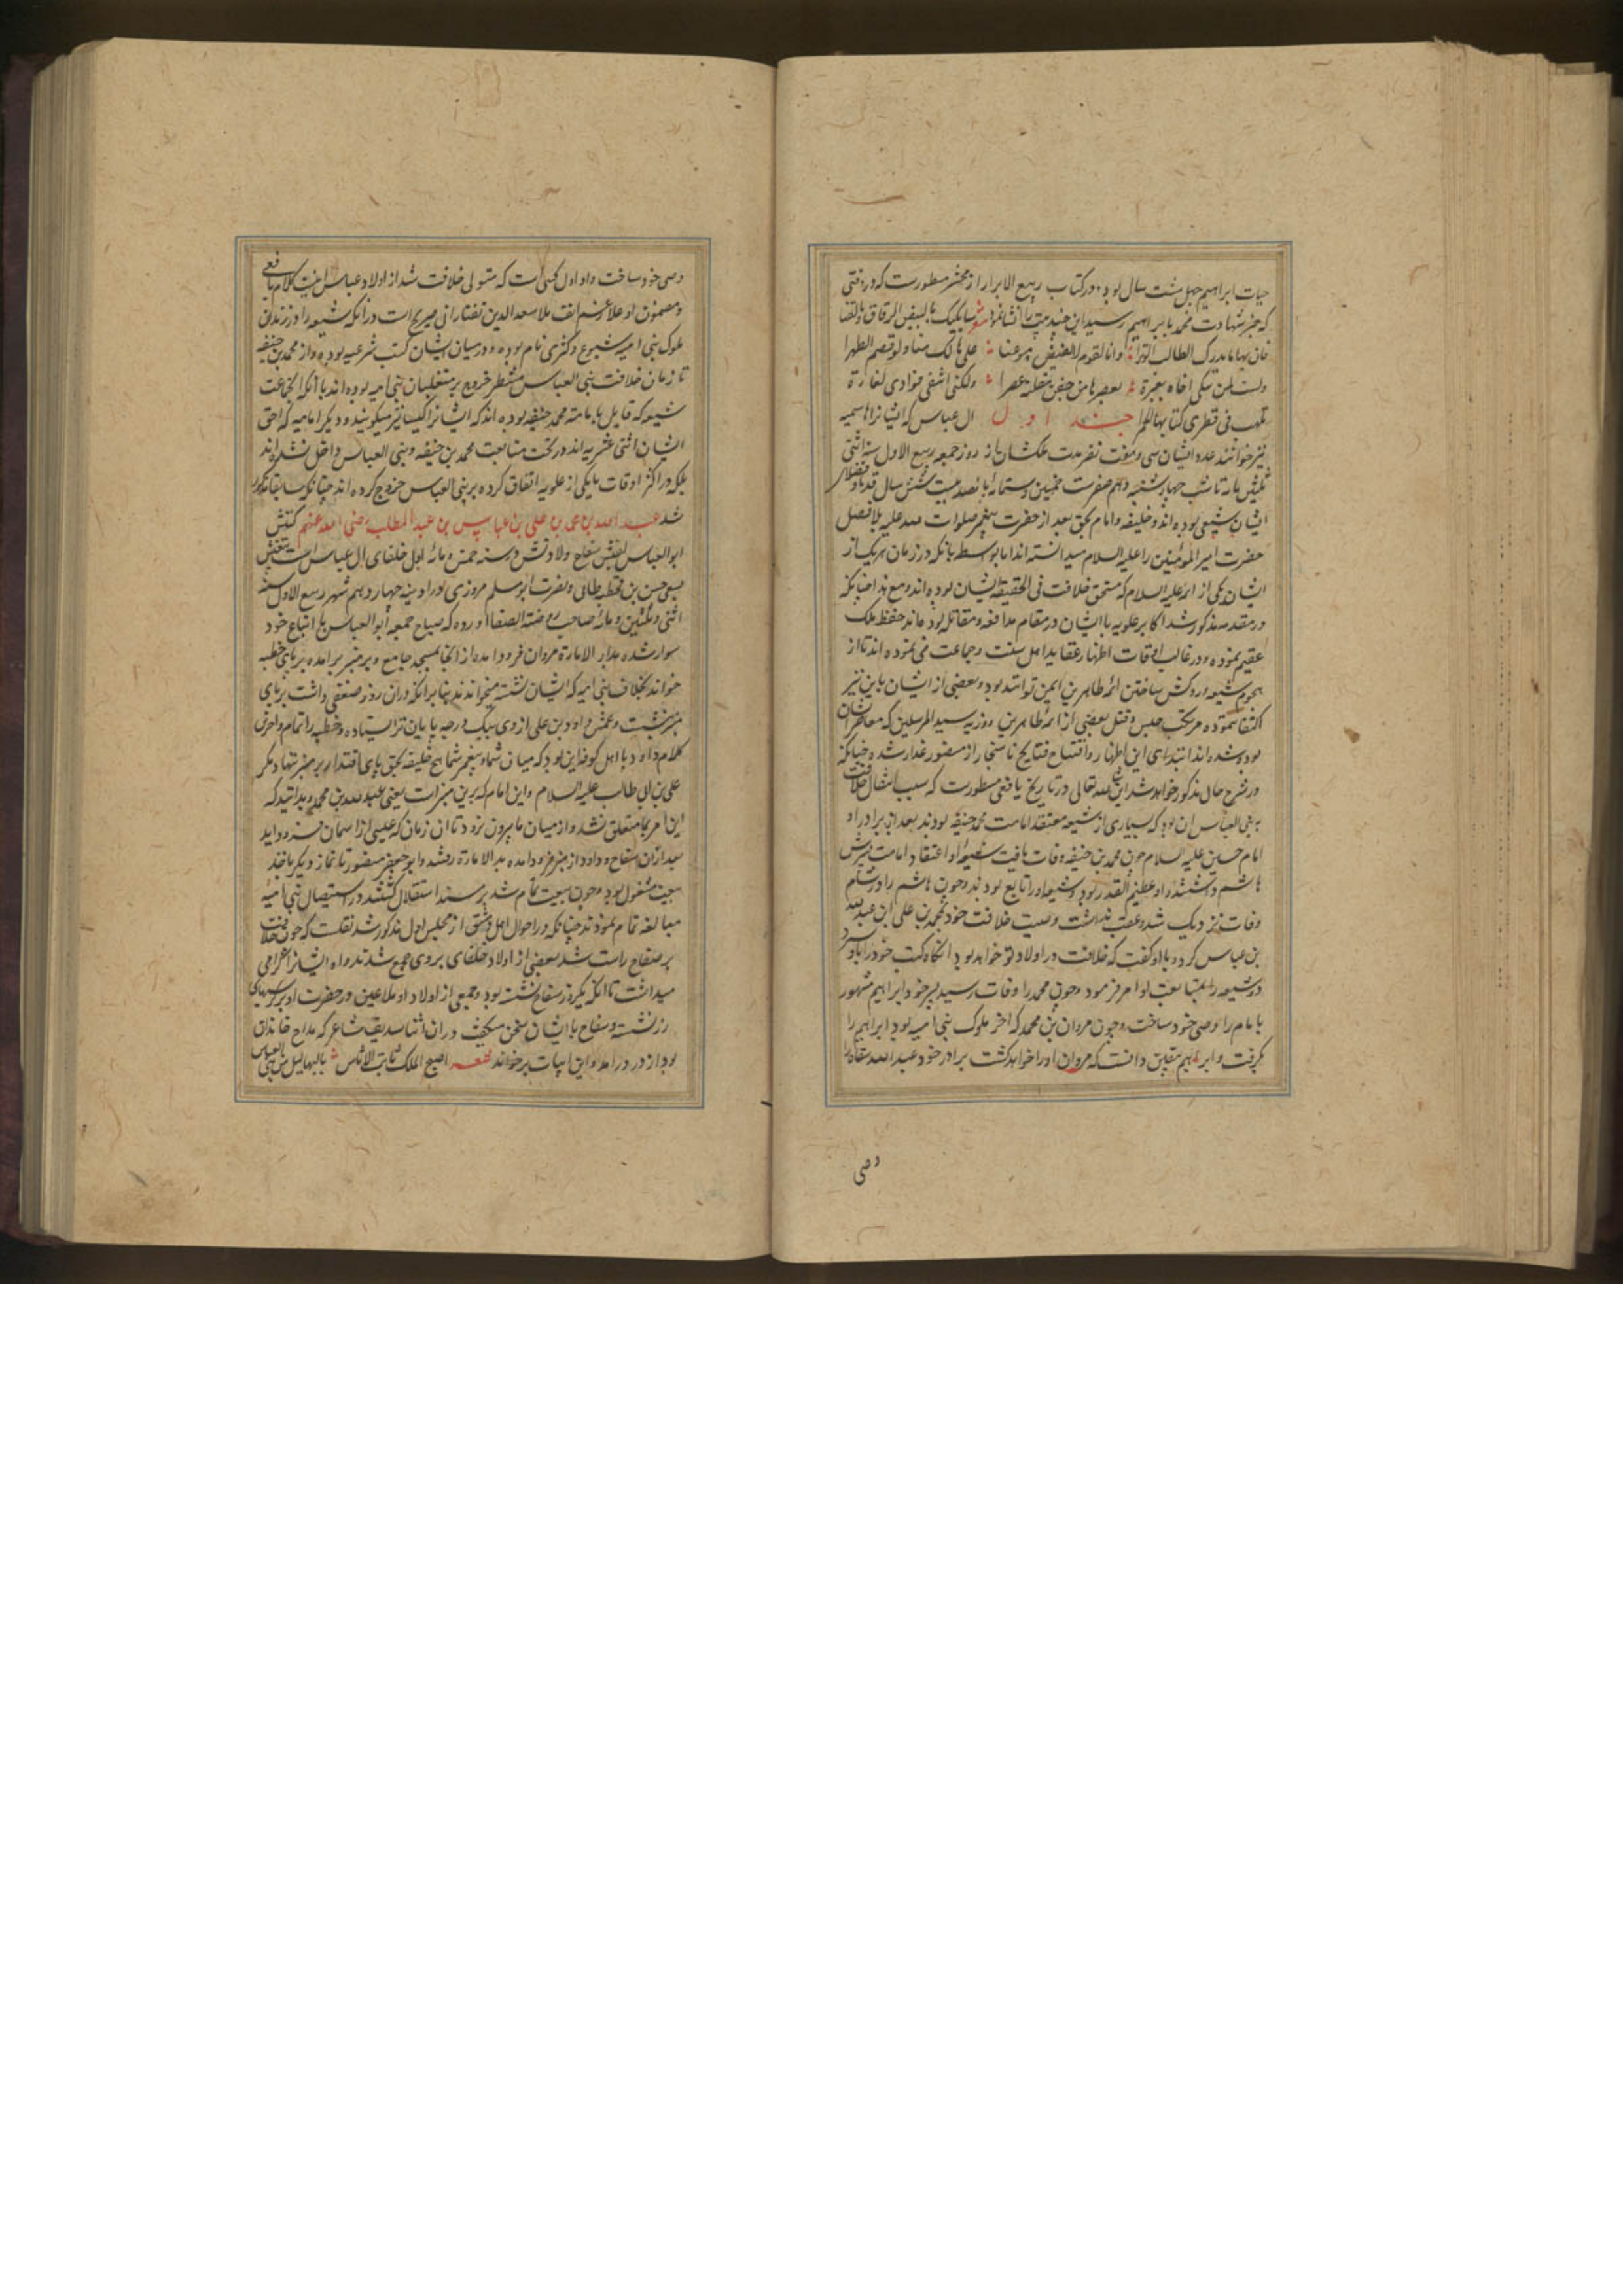 حیات ابراهیم چهل هشت سال بود و در کتاب ربیع الابرار از مخشر مسطورست که در وقتی
که خبر شهادت محمد بابراهیم رسید این چند بیت را انشا نمود شعر سابکیک بالبیض الرقاق و بالقنا
فان بها ما یدرک الطالب الوترا وانا لقوم لا تفیض دموعنا علی هالک منا ولو قصم الظهرا
ولست کمن یبکی اخاه بعبرة یعصرها من جفن مقلته عصرا ولکنی اشفی فوادی لغارة
تلهب فی قطری کتایبها الجمرا جند اول ال عباس که ایشانرا هاشمیه
نیز خوانند عدد ایشان سی و هفت نفر مدت ملکشان از روز جمعه ربیع الاول سنه اثنی
ثلثین مائه تا شب چهارشنبه دهم صفر ست خمسین و ستمائه پانصد بیست شش سال
ایشان شیعی بوده اند و خلیفه و امام بحق بعد از حضرت پیغمبر صلوات الله علیه بلا فصل
حضرت امیر المومنین را علیه السلام میدانسته اند اما بواسطه بانکه در زمان هر یک از
ایشان یکی از ائمه علیه السلام که مستحق خلافت فی الحقیقه ایشان بوده اند و مع هذا چنانکه
در مقدمه مذکور شد اکابر علویه با ایشان در مقام مدافعه و مقاتله بودهاند حفظ ملک
عقیم نموده و در غالب اوقات اظهار عقاید اهل سنت و جماعت می نموده اند تا از
هجوم شیعه و روکش ساختن ائمه طاهرین ایمن توانند بود و بعضی از ایشان باین نیز
اکتفا ننموده مرتکب حبس و قتل بعضی از ائمه طاهرین و ذریه سید المرسلین که معاصر ایشان
بوده شده اند ابتدای این اظهار و افتتاح فتایج تا سنجار از منصور غدار شده چنانکه
در شرح حال مذکور خواهد شد ان شاء الله تعالی و در تاریخ یافعی مسطورست که سبب انتقال خلافت
به بنی العباس ان بود که بسیاری از شیعه معتقد امامت محمد حنیفه بودند بعد از برادر او
امام حسین علیه السلام چون محمد بن حنیفه وفات یافت شیعه او اعتقاد امامت پسرش
هاشم داشتند و او عظیم القدر بود و شیعه او را تابع بودند و چون هاشم را در شام
وفات نزدیک شد و عقب نداشت وصیت خلافت خود بمحمد بن علی ابن عبد الله
بن عباس کرد و با او گفت که خلافت در اولاد تو خواهد بود انگاه کتب خود را باو سپرد
و شیعه را بمتابعت او امر فرمود و چون محمد را وفات رسید پسر خود ابراهیم مشهور
بامام را وصی خود ساخت و چون مروان بن محمد که اخر ملوک بنی امیه بود ابراهیم را
بگرفت و ابراهیم بیقین دانست که مروان او را خواهد کشت برادر خود عبد الله سفاح را
وصی
وصی خود ساخت و او اول کسی است که متولی خلافت شد از اولاد عباس اینست کلام یافعی
و مضمون او علاء نسخ لغت ملا سعد الدین تفتازانی صریح است در انکه شیعه را در زمان
ملوک بنی امیه شیوع و کثرتی تمام بوده و در میان ایشان کتب شرعیه بوده و از محمد بن حنیفه
تا زمان خلافت بنی العباس منتظر خروج بر متغلبان بنی امیه بوده اند با انکه جماعت
شیعه که قایل بامامت محمد حنیفه بوده اند که ایشانرا کیسانیه میگویند و دیگر امامیه که احق
ایشان اثنی عشریه اند در تحت متابعت محمد بن حنیفه و بنی العباس داخل نشده اند
بلکه در اکثر اوقات با یکی از علویه اتفاق کرده بر بنی العباس خروج کرده اند چنانکه سابقا مذکور
شد عبد الله بن محمد بن علی بن عباس بن عبد المطلب رضی الله عنهم کنیتش
ابو العباس لقبش سفاح ولادتش در سنه خمس و مائه اول خلفای ال عباس است
بسعی حسن بن قحطبه طائی و نصرت ابو مسلم مروزی او را دینه چهاردهم شهر ربیع الاول سنه
اثنی و ثلثین و مائه صاحب روضة الصفا اورده که صباح جمعه ابو العباس با اتباع خود
سوار شده بدار الامارة مروان فرود امده از انجا بمسجد جامع و بر منبر برامده بر پای خطبه
خواند بخلاف بنی امیه که ایشان نشسته میخواندند بنابرانکه دران روز ضعفی داشت بر پای
منبر نشست و عمش داود بن علی از وی بیک درجه پایان تر ایستاده و خطبه را تمام و اخر
کلام داود با اهل کوفه این بود که میان شما و پیغمبر شما هیچ خلیفه بحق پای اقتدار بر منبر ننهاد مگر
علی بن ابی طالب علیه السلام و این امام که برین منبرات یعنی عبد الله بن محمد و بدانید که
این امر بما متعلق شد و از میان ما بیرون نرود تا ان زمان که عیسی از اسمان فرود اید
بعد ازان سفاح و داود از منبر فرود امده بدار الامارة رفتند و ابو جعفر منصور تا نماز دیگر باخذ
بیعت مشغول بود و چون بیعت تمام شد بر مسند استقلال نشسته در استیصال بنی امیه
مبالغه تمام نمودند چنانکه در احوال اهل دمشق از مجلس اول مذکور شد نقلست که چون خلافت
بر سفاح راست شد بعضی از اولاد خلفای بر وی جمع شدند و او ایشانرا گرامی
میداشت تا انکه یکروز سفاح نشسته بود و جمعی از اولاد او ملاعین در حضرت او بر کرسیهای
زر نشسته و سفاح با ایشان سخن میگفت دران اثنا سدیف شاعر که مداح خاندان
بود از در درامد و این ابیات برخواند اصبح الملک ثابت الاساس بالبهالیل من بنی العباس